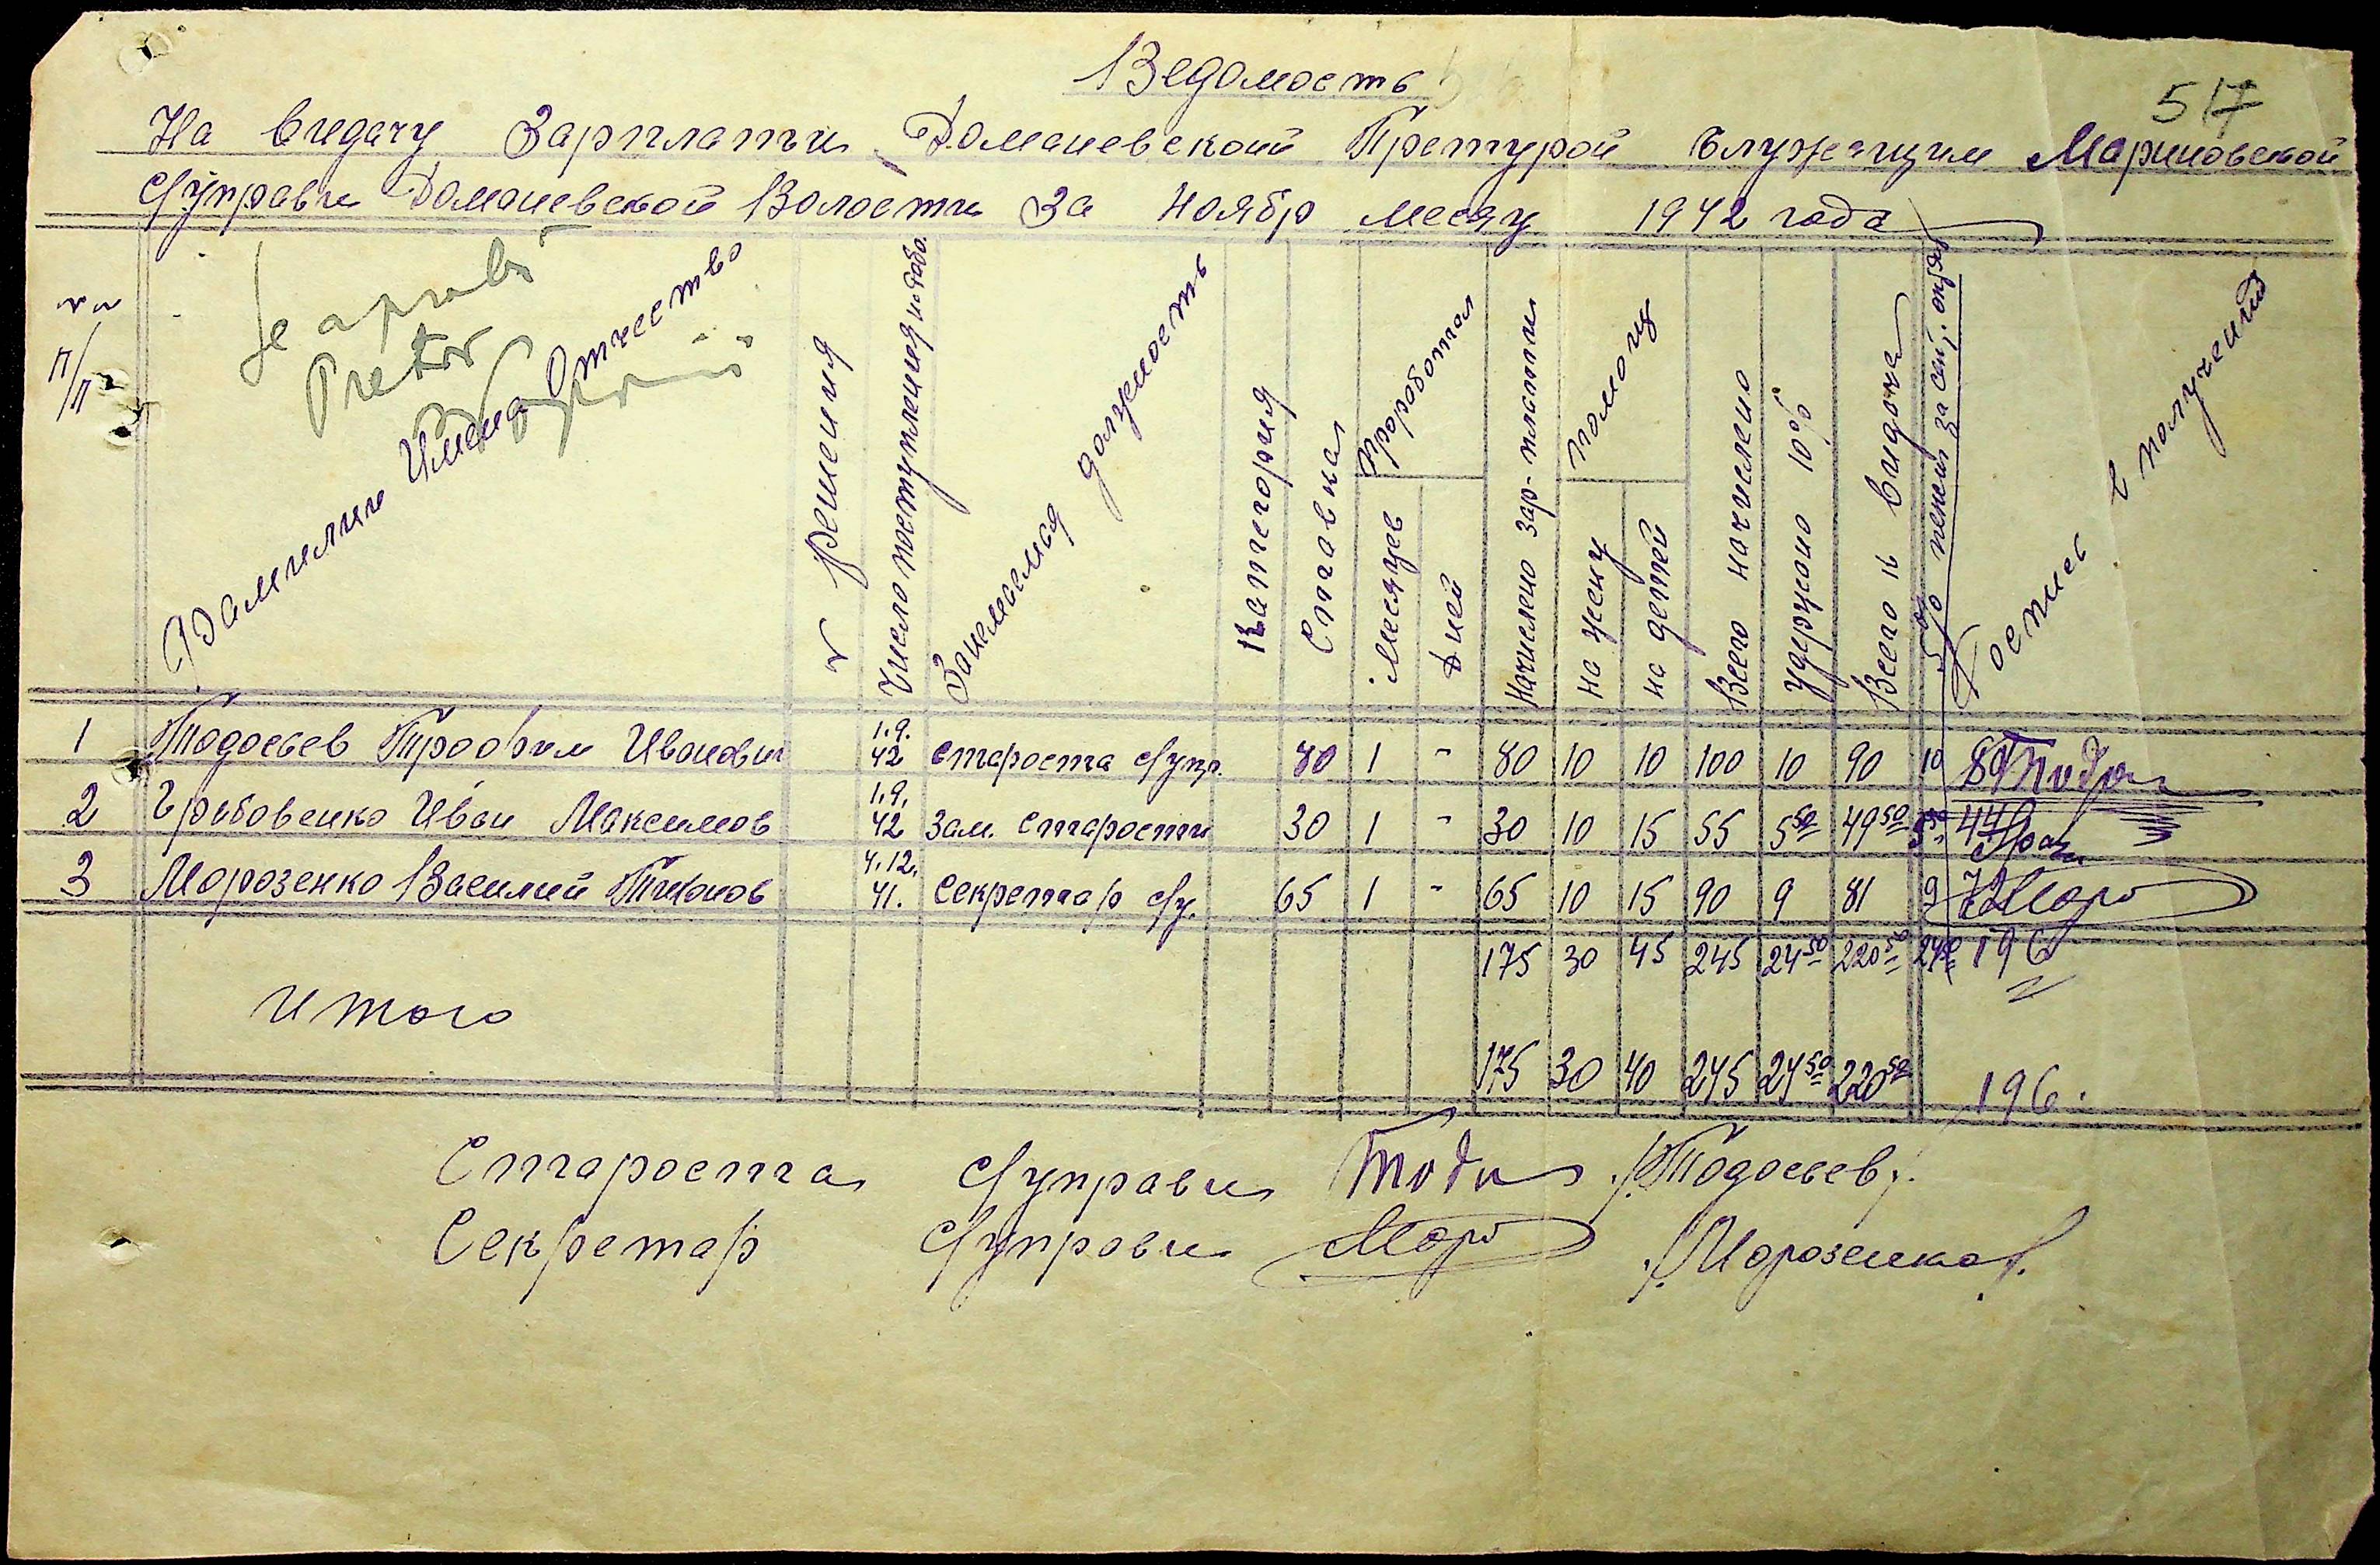 Ведомость
517
На видачу Зарплати Доманевской Претурой Служащим Мариновской
С/управи Доманевской Волости за Ноябр месяц 1942 года
Se aprobă
Pretor
№ п/п
Фамилии Имена Отчество
№ решения
Число поступления на рабо.
Занимаемая должность
Категория
Ставка
Проработал
месяцев
дней
Начислено зар-платы
помощ
на жену
на детей
Всего начислено
Удержано 10%
Всего к видаче
Роспис в получении
1 Тодосьев Трофим Иванович 1.9.42 староста С/упр. 80 1 - 80 10 10 100 10 90 10 80
2 Грибовенко Иван Максимов 1.9.42 Зам. старости 30 1 - 30 10 15 55 5 50 49 50 5 50 44
3 Морозенко Василий Тихонов 4.12.41. Секретар С/у. 65 1 - 65 10 15 90 9 81 9 72
175 30 45 245 24 50 220 50 24 50 196
итого
175 30 40 245 24 50 220 50 196.
Староста С/управи /Тодосьев/.
Секретар С/управи /Морозенко/.